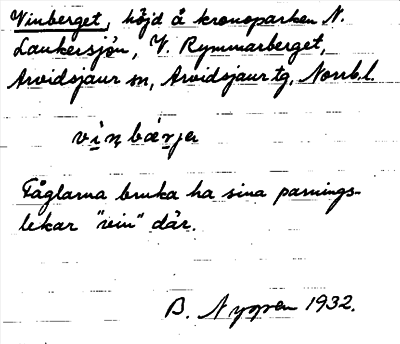 Vinberget, höjd å kronoparken N.
Laukersjön, V. Rymmarberget,
Arvidsjaur sn, Arvidsjaur tg, Norrb.l.
vinbærja
Fåglarna bruka ha sina parnings-
lekar "vin" där.
B. Nygren 1932.